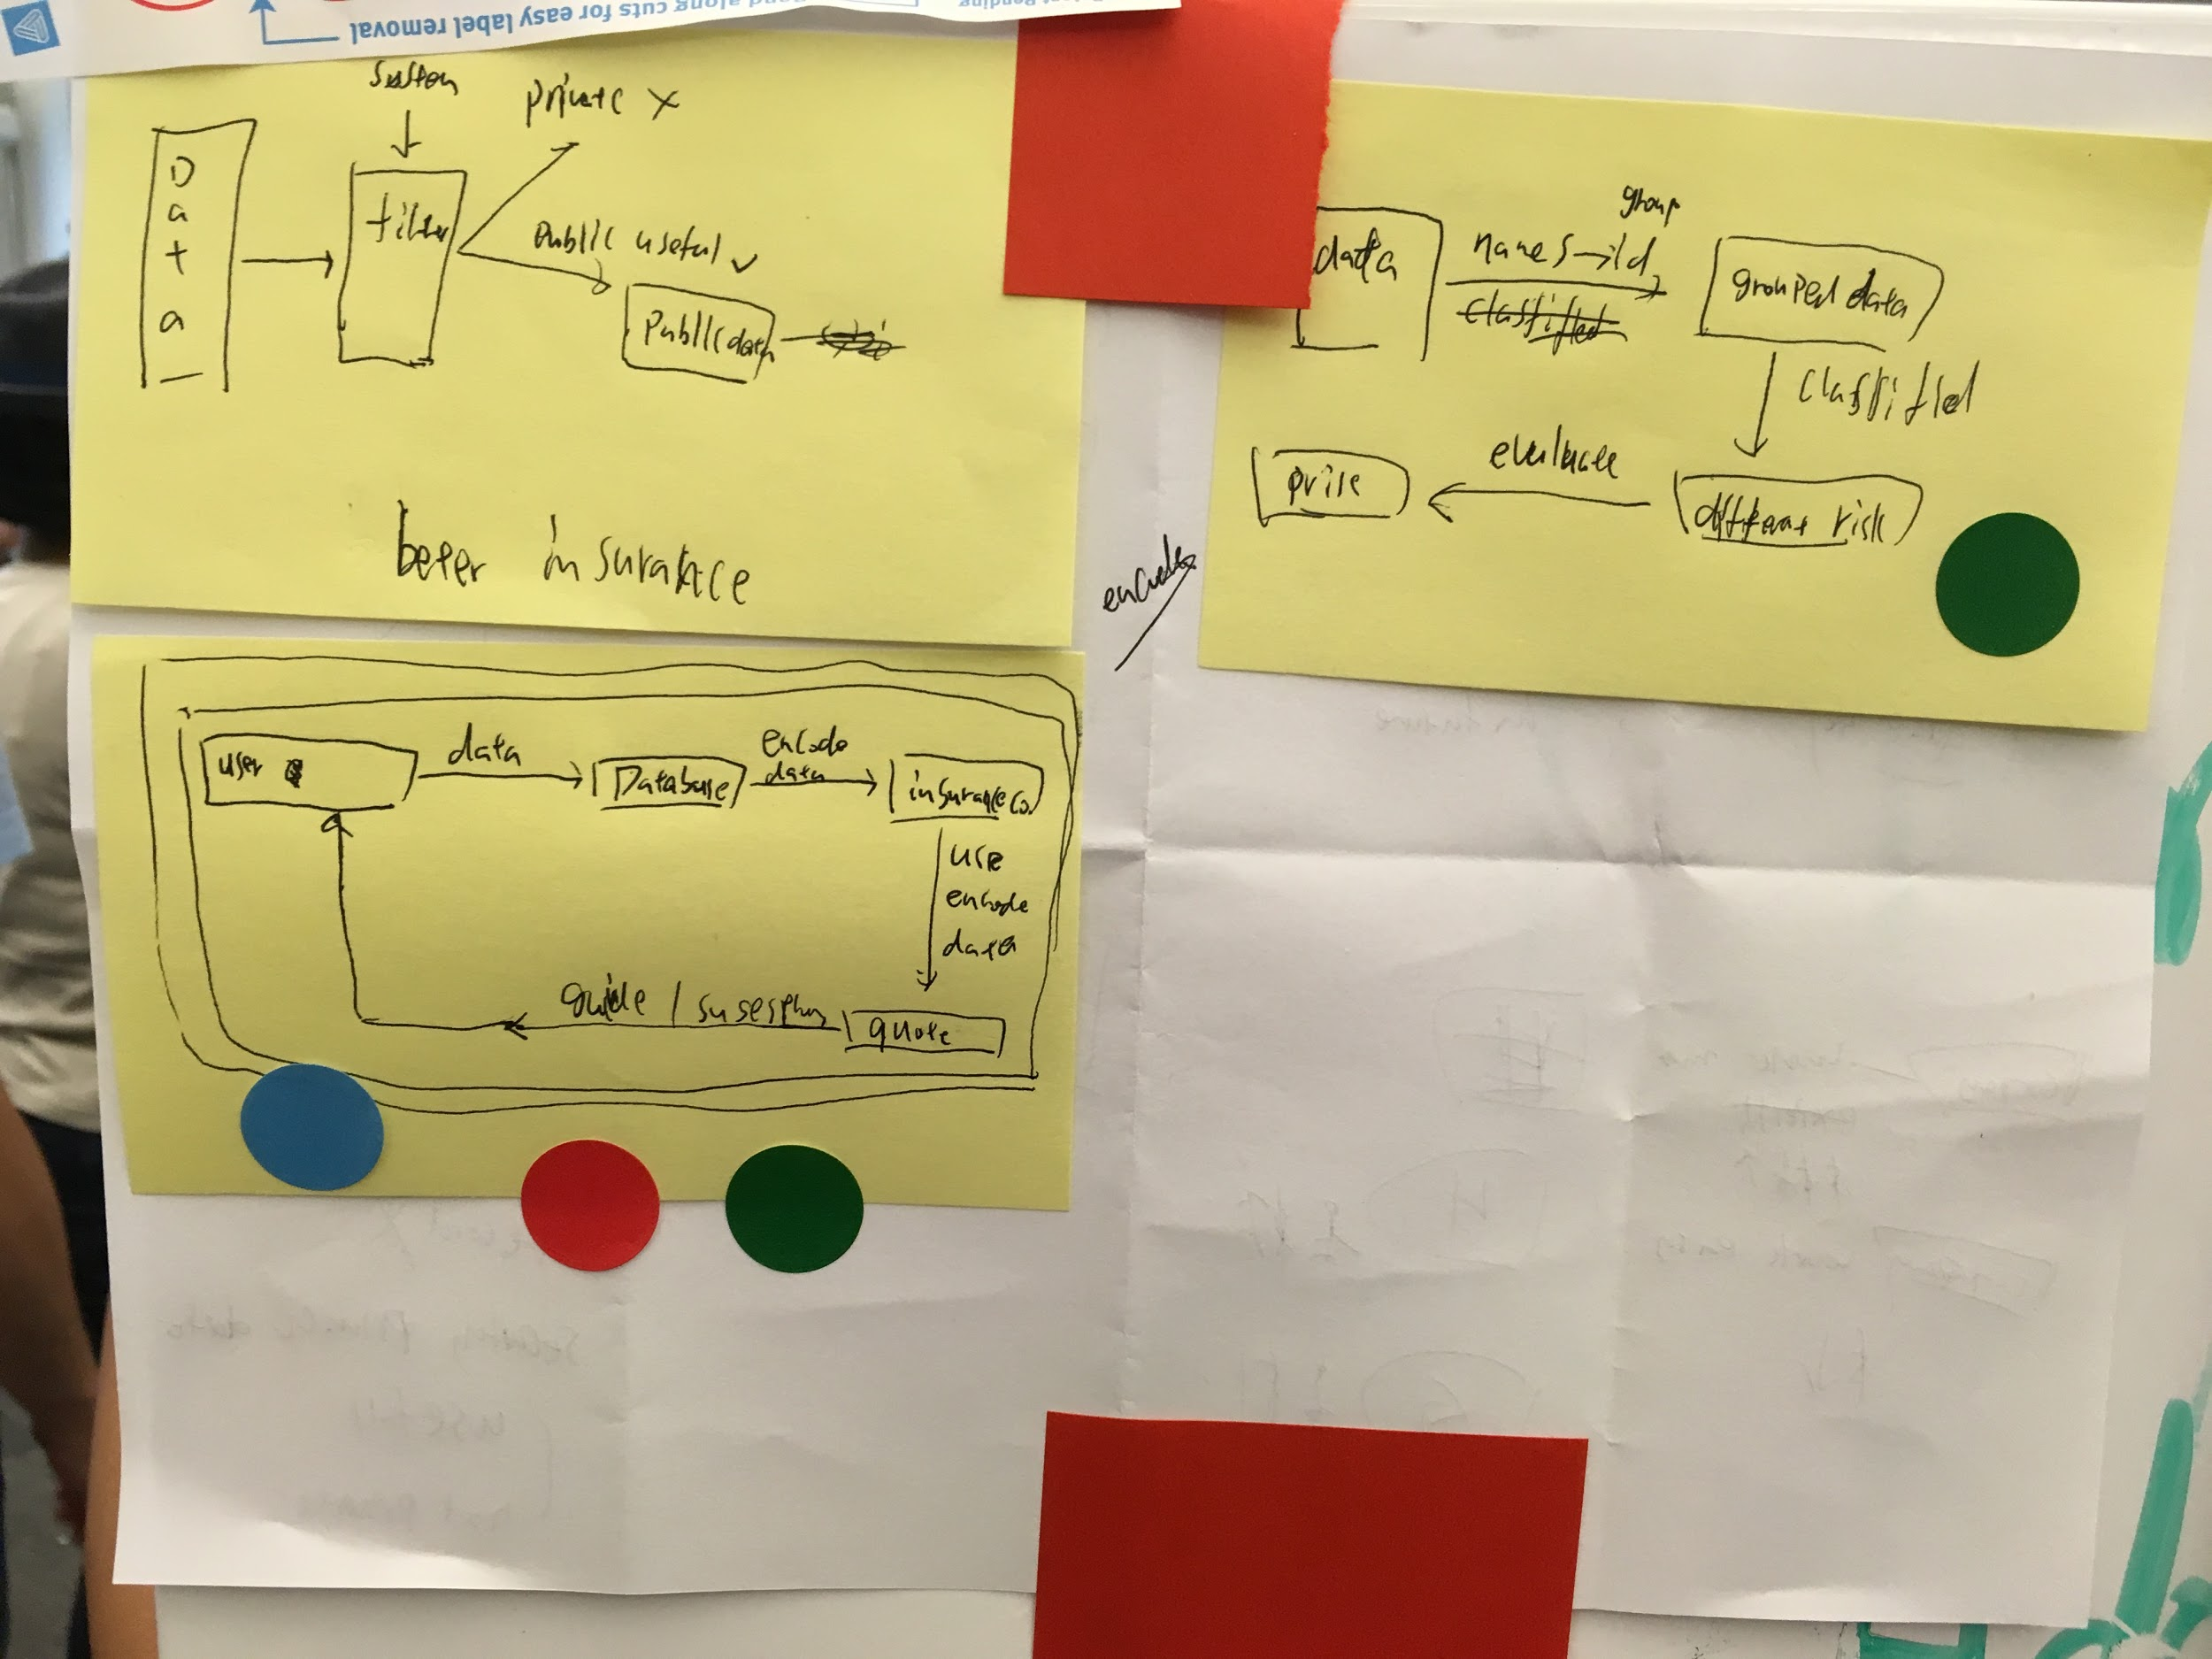 along cuts for easy label removal
private x
D
a
t
a
filter
public useful ✓
Public data
beter insurance
group
data
names→id
classified
grouped data
classified
evaluate
prise
different risk
encode
user
data
Database
encode
data
insurance co.
use
encode
data
guide /
quote